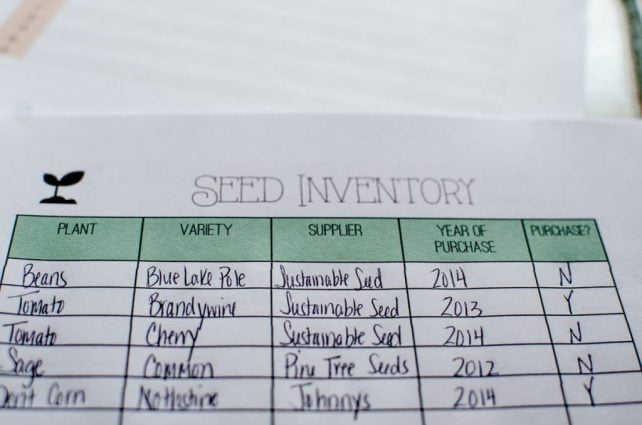 SEED INVENTORY
PLANT VARIETY SUPPLIER YEAR OF PURCHASE PURCHASE?
Beans Blue Lake Pole Sustainable Seed 2014 N
Tomato Brandywine Sustainable Seed 2013 Y
Tomato Cherry Sustainable Seed 2014 N
Sage Common Pine Tree Seeds 2012 N
Corn Johnnys 2014 Y